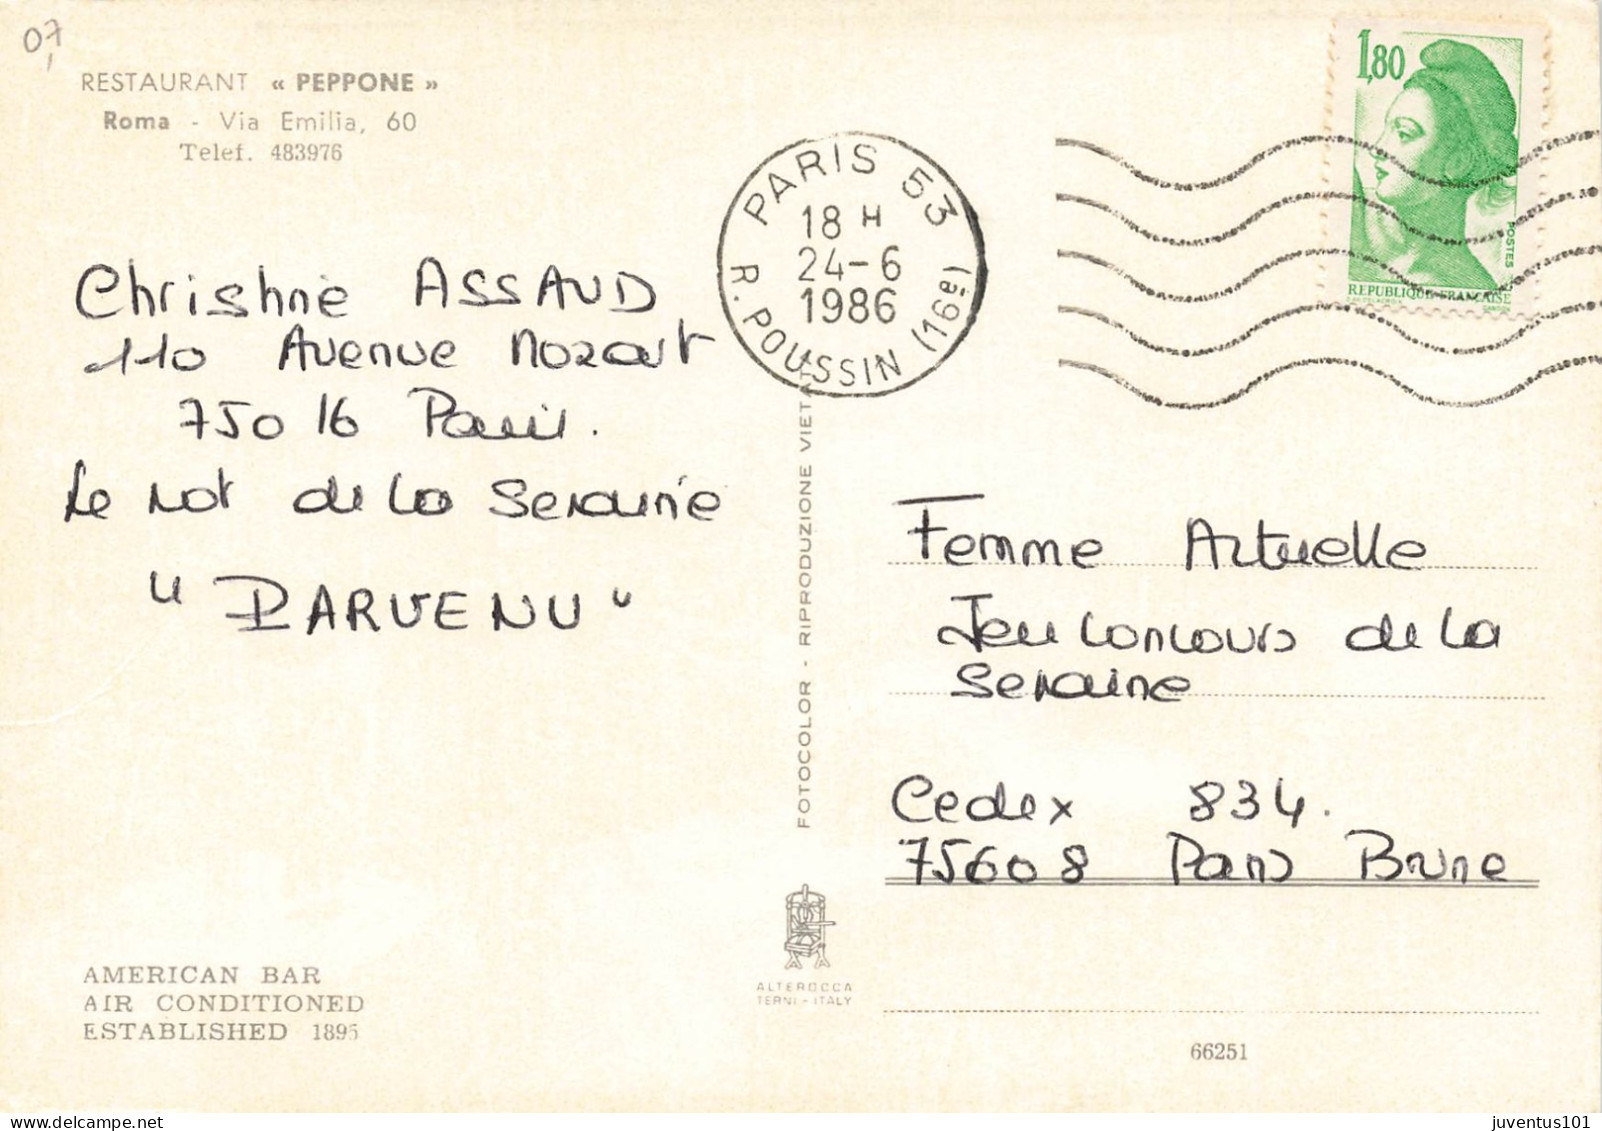 07
RESTAURANT « PEPPONE »
Roma - Via Emilia, 60
Telef. 483976
Christine ASSAUD
110 Avenue Mozart
75016 Paris.
Le mot de la semaine
" PARVENU "
AMERICAN BAR
AIR CONDITIONED
ESTABLISHED 1895
PARIS 53
18 H
24-6
1986
R. POUSSIN (16e)
FOTOCOLOR - RIPRODUZIONE VIETATA
ALTEROCCA
TERNI - ITALY
1,80
POSTES
REPUBLIQUE FRANCAISE
Femme Actuelle
Jeu Concours de la
Semaine
Cedex 834.
75608 Paris Brune
66251
juventus101